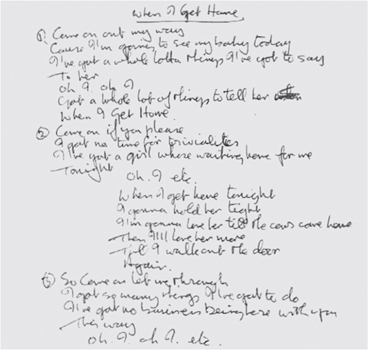 When I Get Home
① Come on out my way
Cause I'm going to see my baby today
I've got a whole lotta things I've got to say
To her
Oh I oh I
Got a whole lot of things to tell her
When I Get Home.
② Come on if you please
I got no time for trivialities
I've got a girl whose waiting home for me
Tonight
Oh. I etc.
When I get home tonight
I gonna hold her tight
I'm gonna love her till the cows come home
Then I'll love her more
Till I walk out the door
Again.
③ So Come on let me through
I got so many things I've got to do
I've got no business being here with you
This way
Oh. I. oh I. etc.